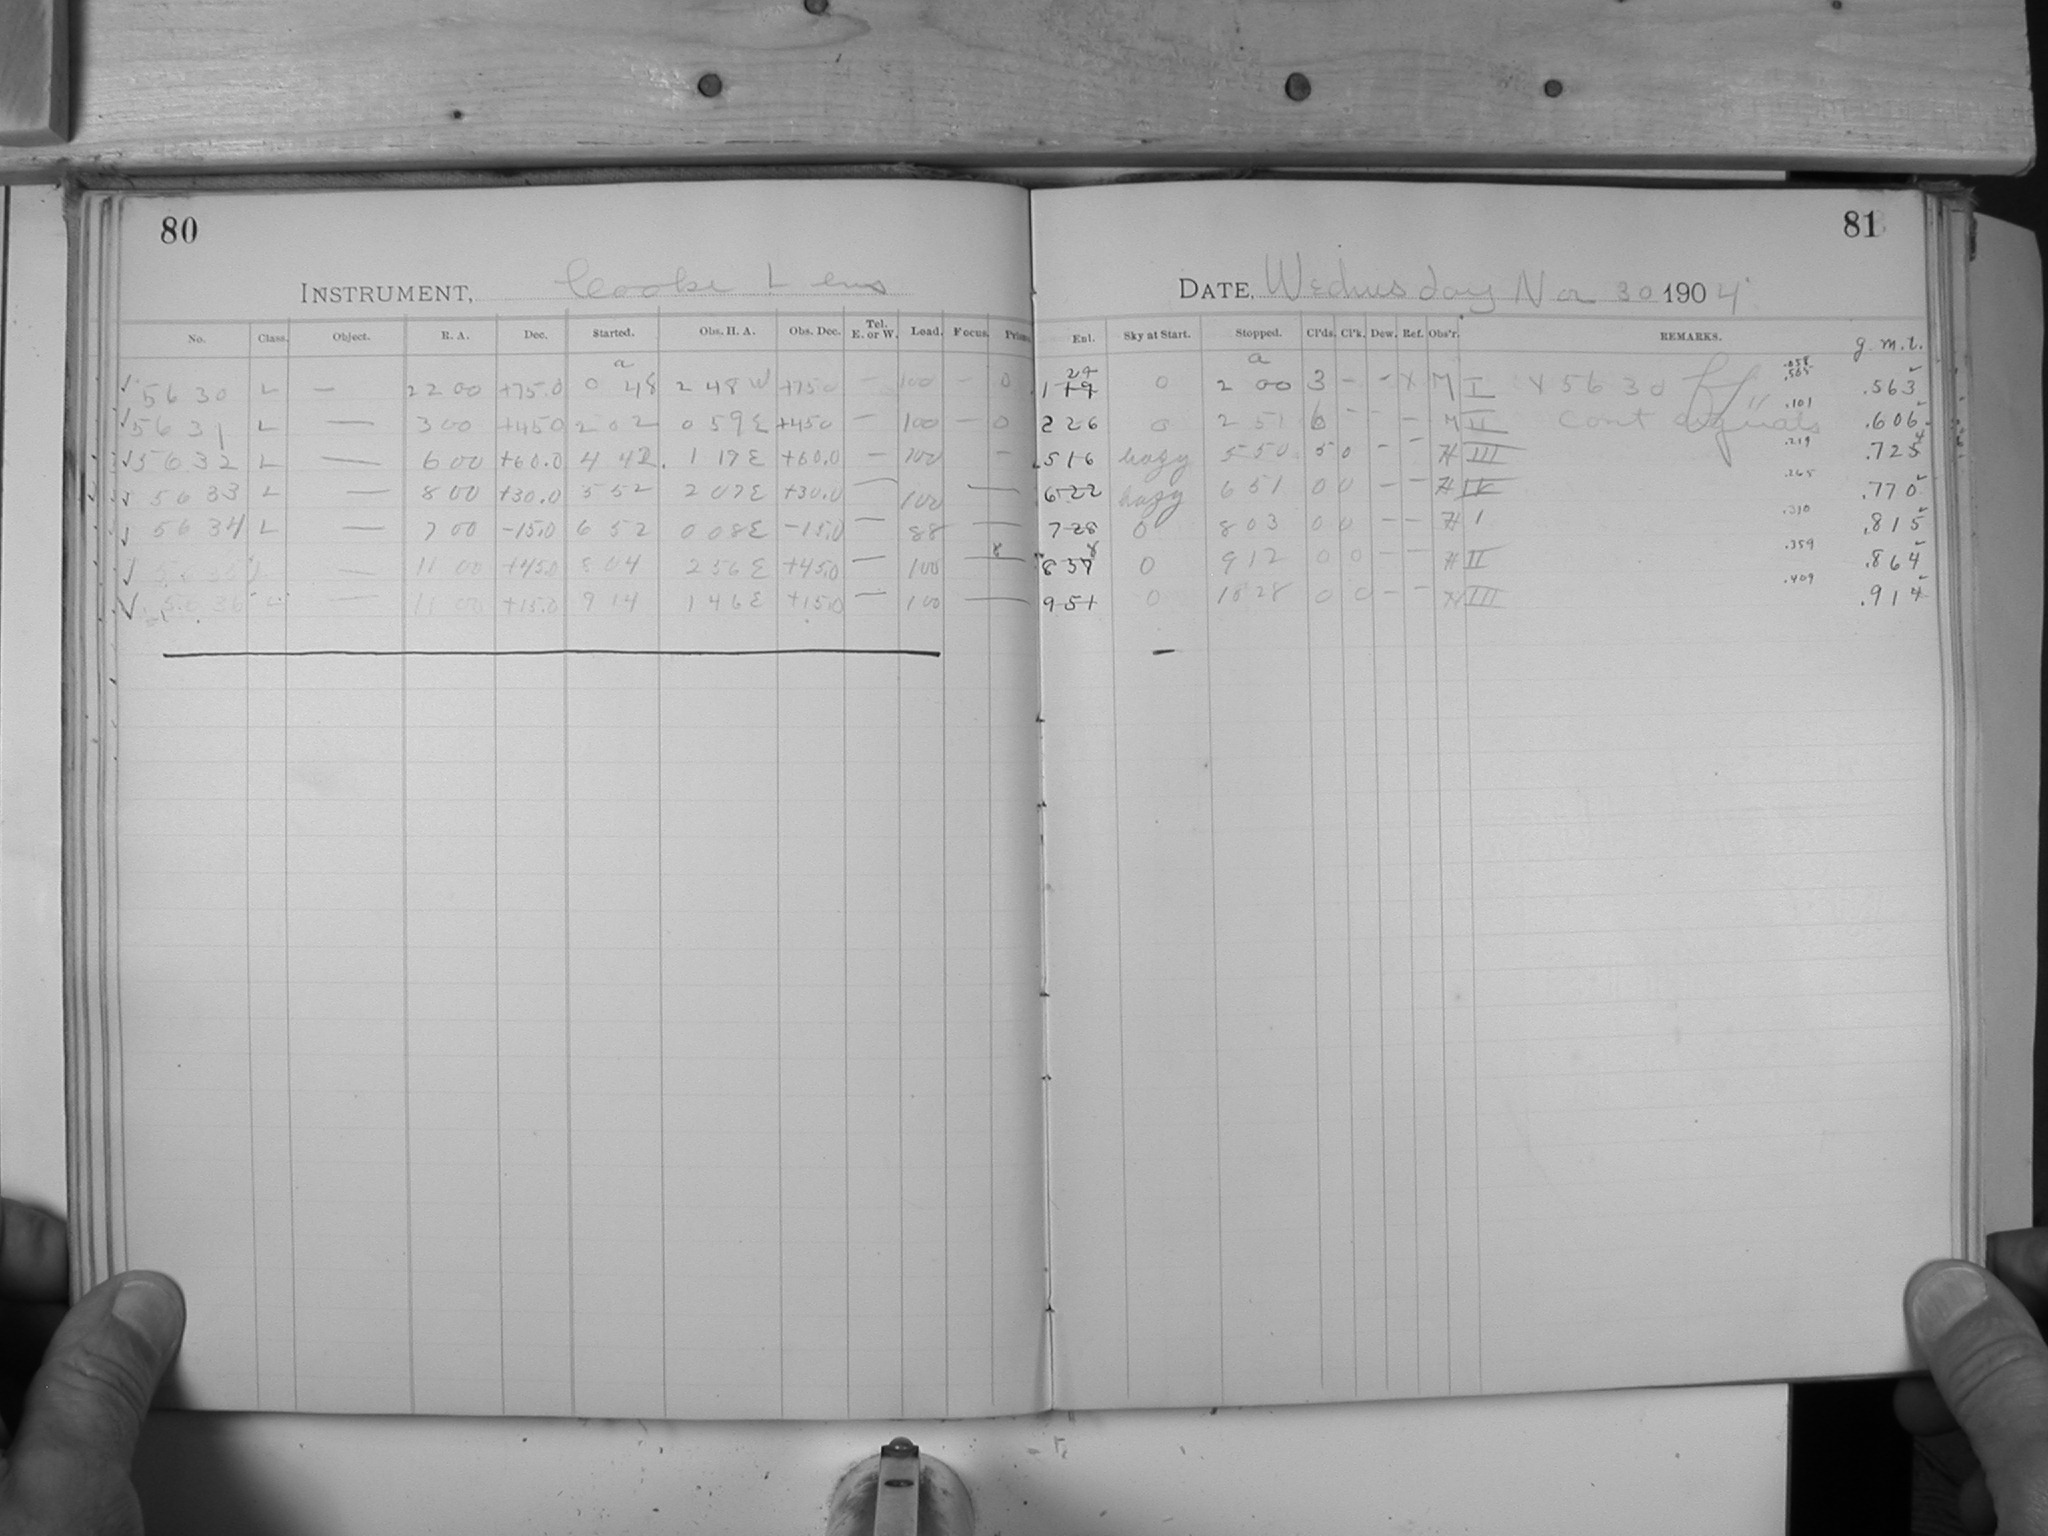 80
INSTRUMENT, Cooke Lens
No. Class. Object. R. A. Dec. Started. Obs. H. A. Obs. Dec. Tel. E. or W. Lead. Focus. Prism
a
√ 5630 L — 22 00 +75.0 0 48 2 48 W +75.0 — 100 — 0
√ 5631 L — 3 00 +45.0 2 02 0 59 E +45.0 — 100 — 0
√ 5632 L — 6 00 +60.0 4 42 1 17 E +60.0 — 100 —
√ 5633 L — 8 00 +30.0 5 52 2 07 E +30.0 — 100 —
√ 5634 L — 7 00 -15.0 6 52 0 08 E -15.0 — 88 —
√ 11 00 +45.0 8 04 2 56 E +45.0 — 100 —
√ 5636 L 11 00 +15.0 9 14 1 46 E +15.0 — 100 —
81
DATE, Wednesday Nov 30 1904
Enl. Sky at Start. Stopped. Cl'ds. Cl'k. Dew. Ref. Obs'r. REMARKS. g. m. t.
a
24 .058
1 0 2 00 3 - - X M I X 5630 .563
.101
2 26 0 2 51 6 - - M II Cont .606
.219
5 16 hazy 5 50 5 0 - - H III .725
.265
6 22 hazy 6 51 0 0 - - H IV .770
.310
7 28 0 8 03 0 0 - - H I .815
8 .359
8 37 0 9 12 0 0 - - H II .864
.409
9 51 0 10 28 0 0 - - H III .914